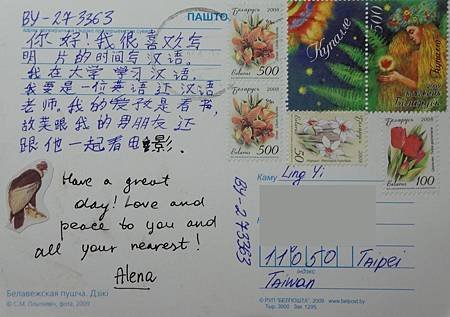 BY-273363
ПАШТО
你好!我很喜欢写
明片的时间写汉语。
我在大学学习汉语。
我要是一位英语还汉语
老师。我的爱孜是看书,
故芙眼我的男朋友还
跟他一起看电影.
Have a great
day! Love and
peace to you and
all your nearest!
Alena
Белавежская пушча. Дзікі
© С.М. Плыткевіч, фота, 2009
Беларусь 2008
500
Belarus
Беларусь 2008
500
Belarus
Купалле
500
Беларусь
Беларусь
50
Беларусь 2008
Belarus 100
Каму Ling Yi
BY-273363
11050 Taipei
індэкс
Taiwan
© РУП "БЕЛПОШТА", 2009 www.belpost.by
Тыр. 3000 Зак. 1295